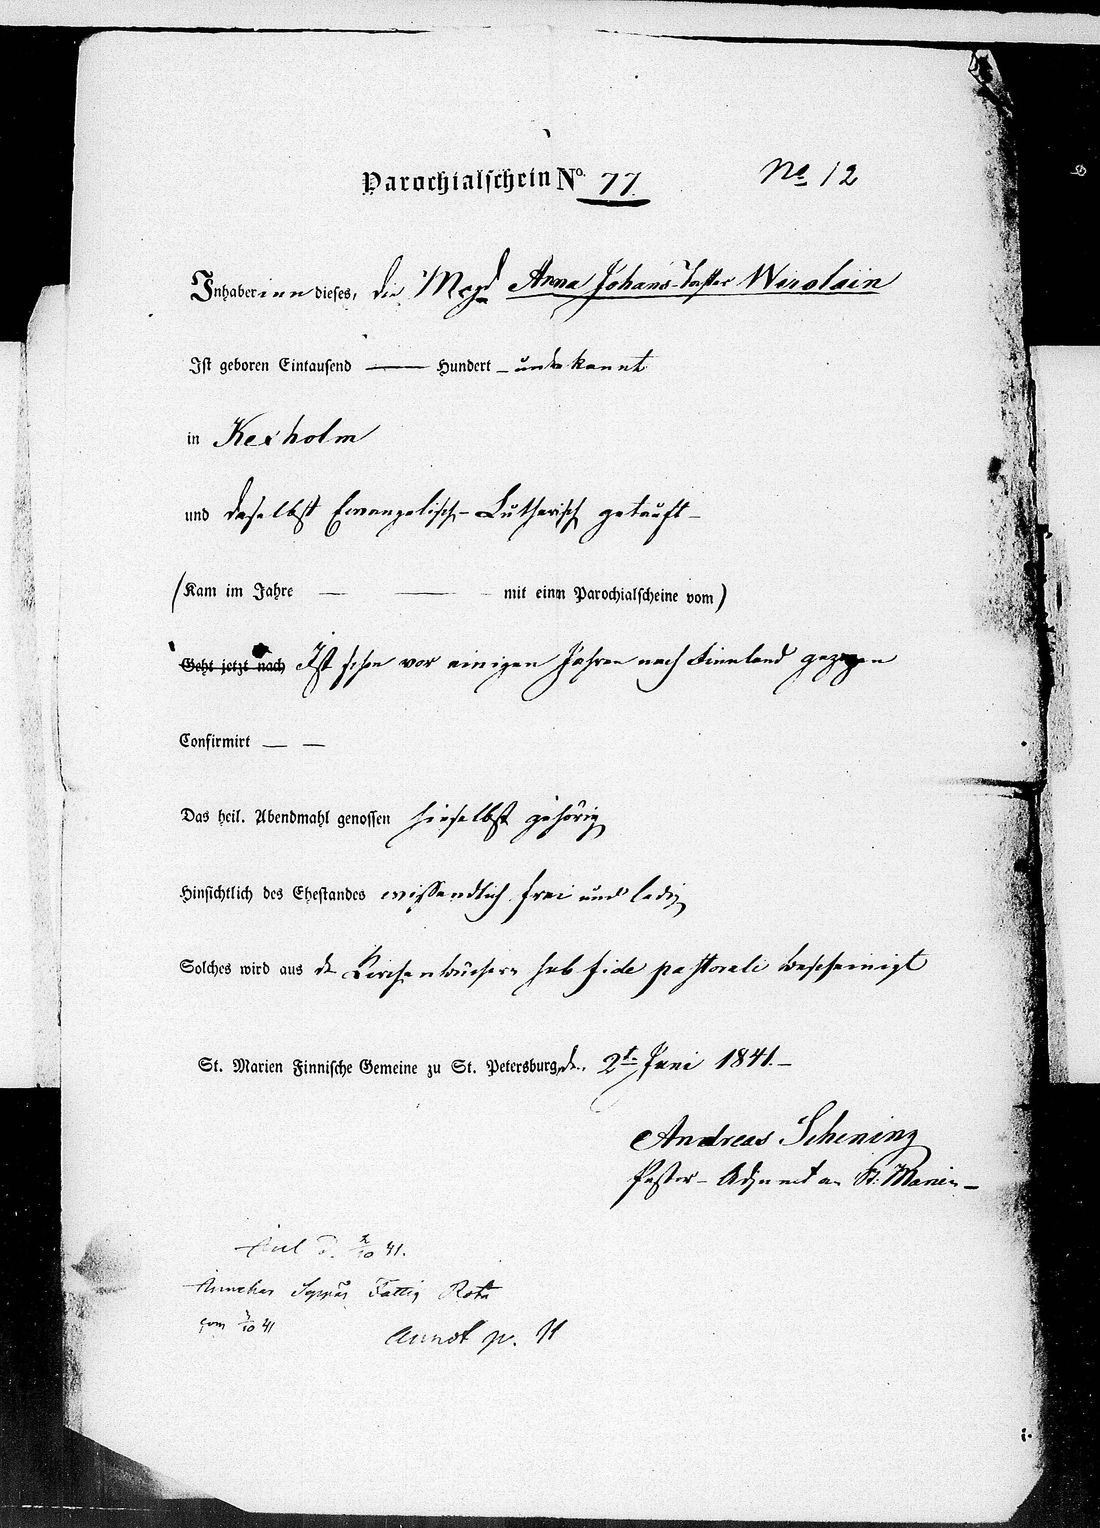 Parochialschein No. 77. No 12
Inhaberinn dieses, die Magd Anna Johans-Tochter Wirolain
Ist geboren Eintausend — Hundert – unbekannt
in Kexholm
und daselbst Evangelisch-Lutherisch getauft –
(Kam im Jahre — — – mit einem Parochialscheine vom)
Geht jetzt nach Ist schon vor einigen Jahren nach Finnland gezogen
Confirmirt — —
Das heil. Abendmahl genossen hieselbst gehörig
Hinsichtlich des Ehestandes wissendlich frei und ledig
Solches wird aus den Kirchenbüchern sub fide pastorali bescheinigt
St. Marien Finnische Gemeine zu St. Petersburg, d. 2t. Juni 1841. –
Andreas Schening
Pastor-Adjunct an St. Marien –
d. 2/10 41.
Fattig Rota
2/10 41
Annot p. 11